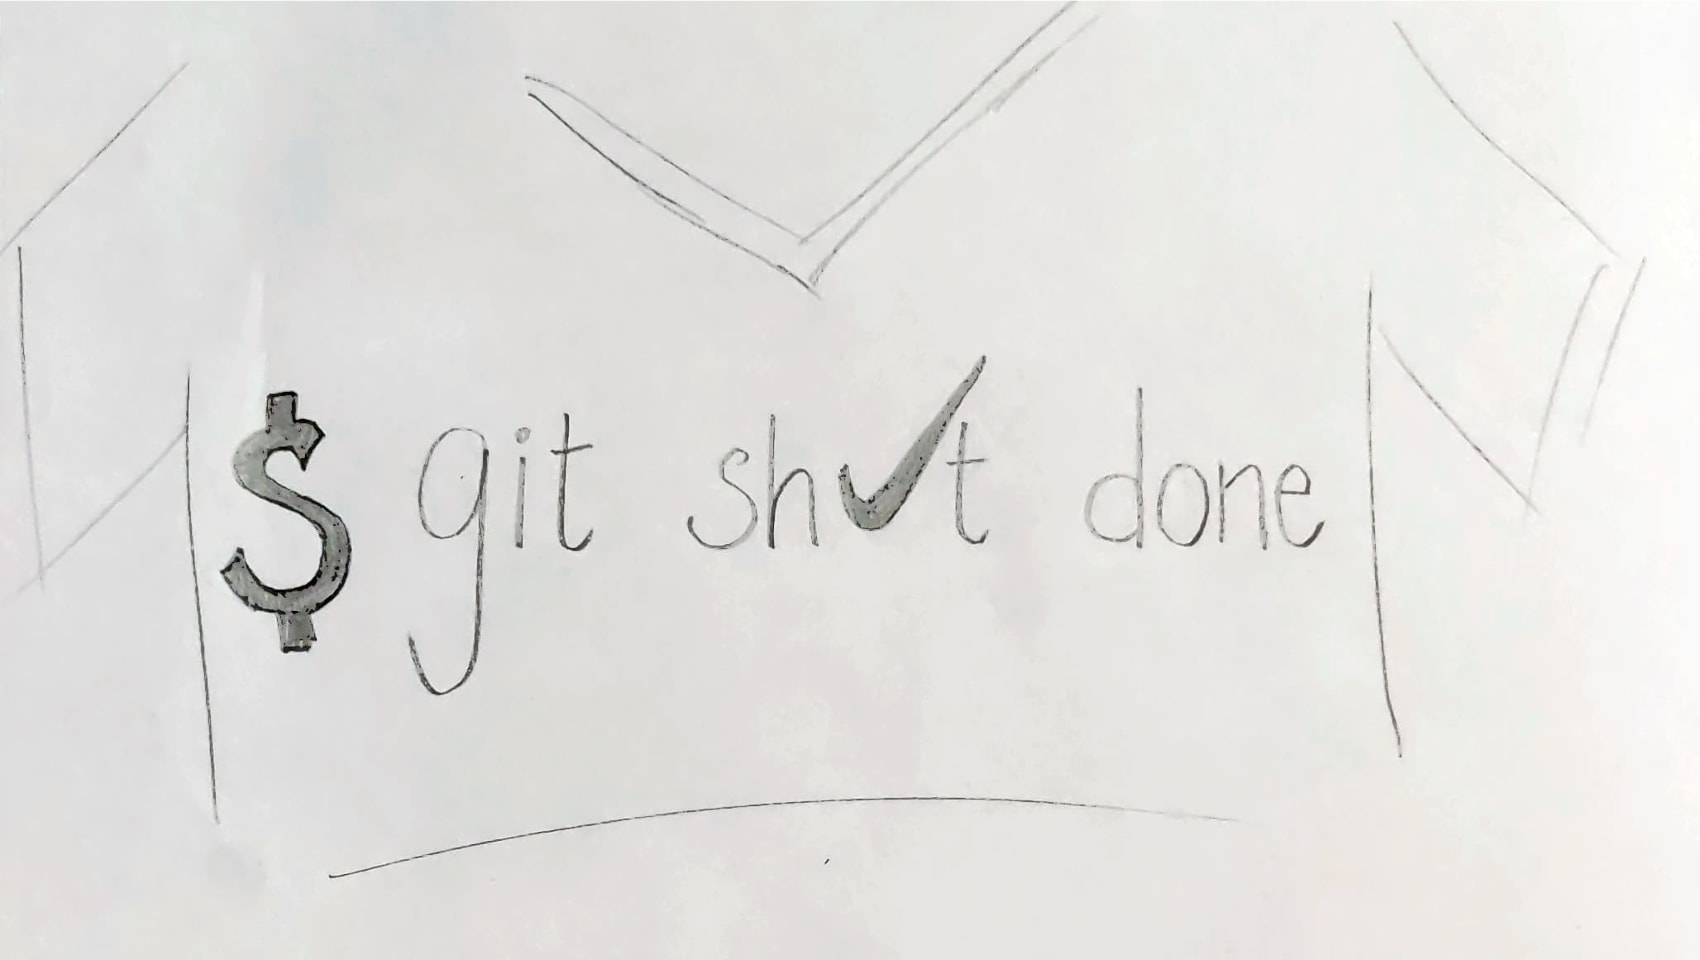 $ git sh✓t done